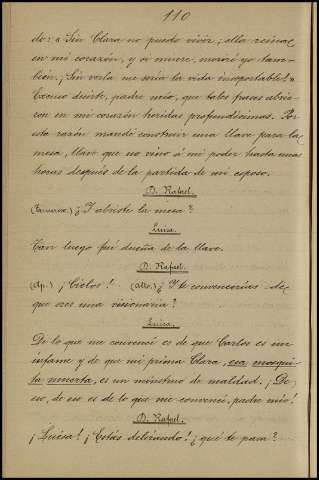 110
do: «Sin Clara no puedo vivir; ella reina
en mi corazón, y si muere, moriré yo tam-
bién, ¡Sin verla me sería la vida insoportable!»
Excuso decirte, padre mío, que tales frases abrie-
ron en mi corazón heridas profundísimas. Por
esta razón mandé construir una llave para la
mesa, llave que no vino á mi poder hasta unas
horas después de la partida de mi esposo.
D. Rafael.
¿Y abriste la mesa?
Luisa.
Tan luego fuí dueña de la llave.
D. Rafael.
(Ap.) ¡Cielos! (Alto.) ¿Y te convencerías de
que eres una visionaria?
Luisa.
De lo que me convencí es de que Carlos es un
infame y de que mi prima Clara, esa mosqui-
ta muerta, es un monstruo de maldad. ¡De
eso, de eso es de lo que me convencí, padre mío!
D. Rafael.
¡Luisa! ¡Estás delirando! ¿qué te pasa?